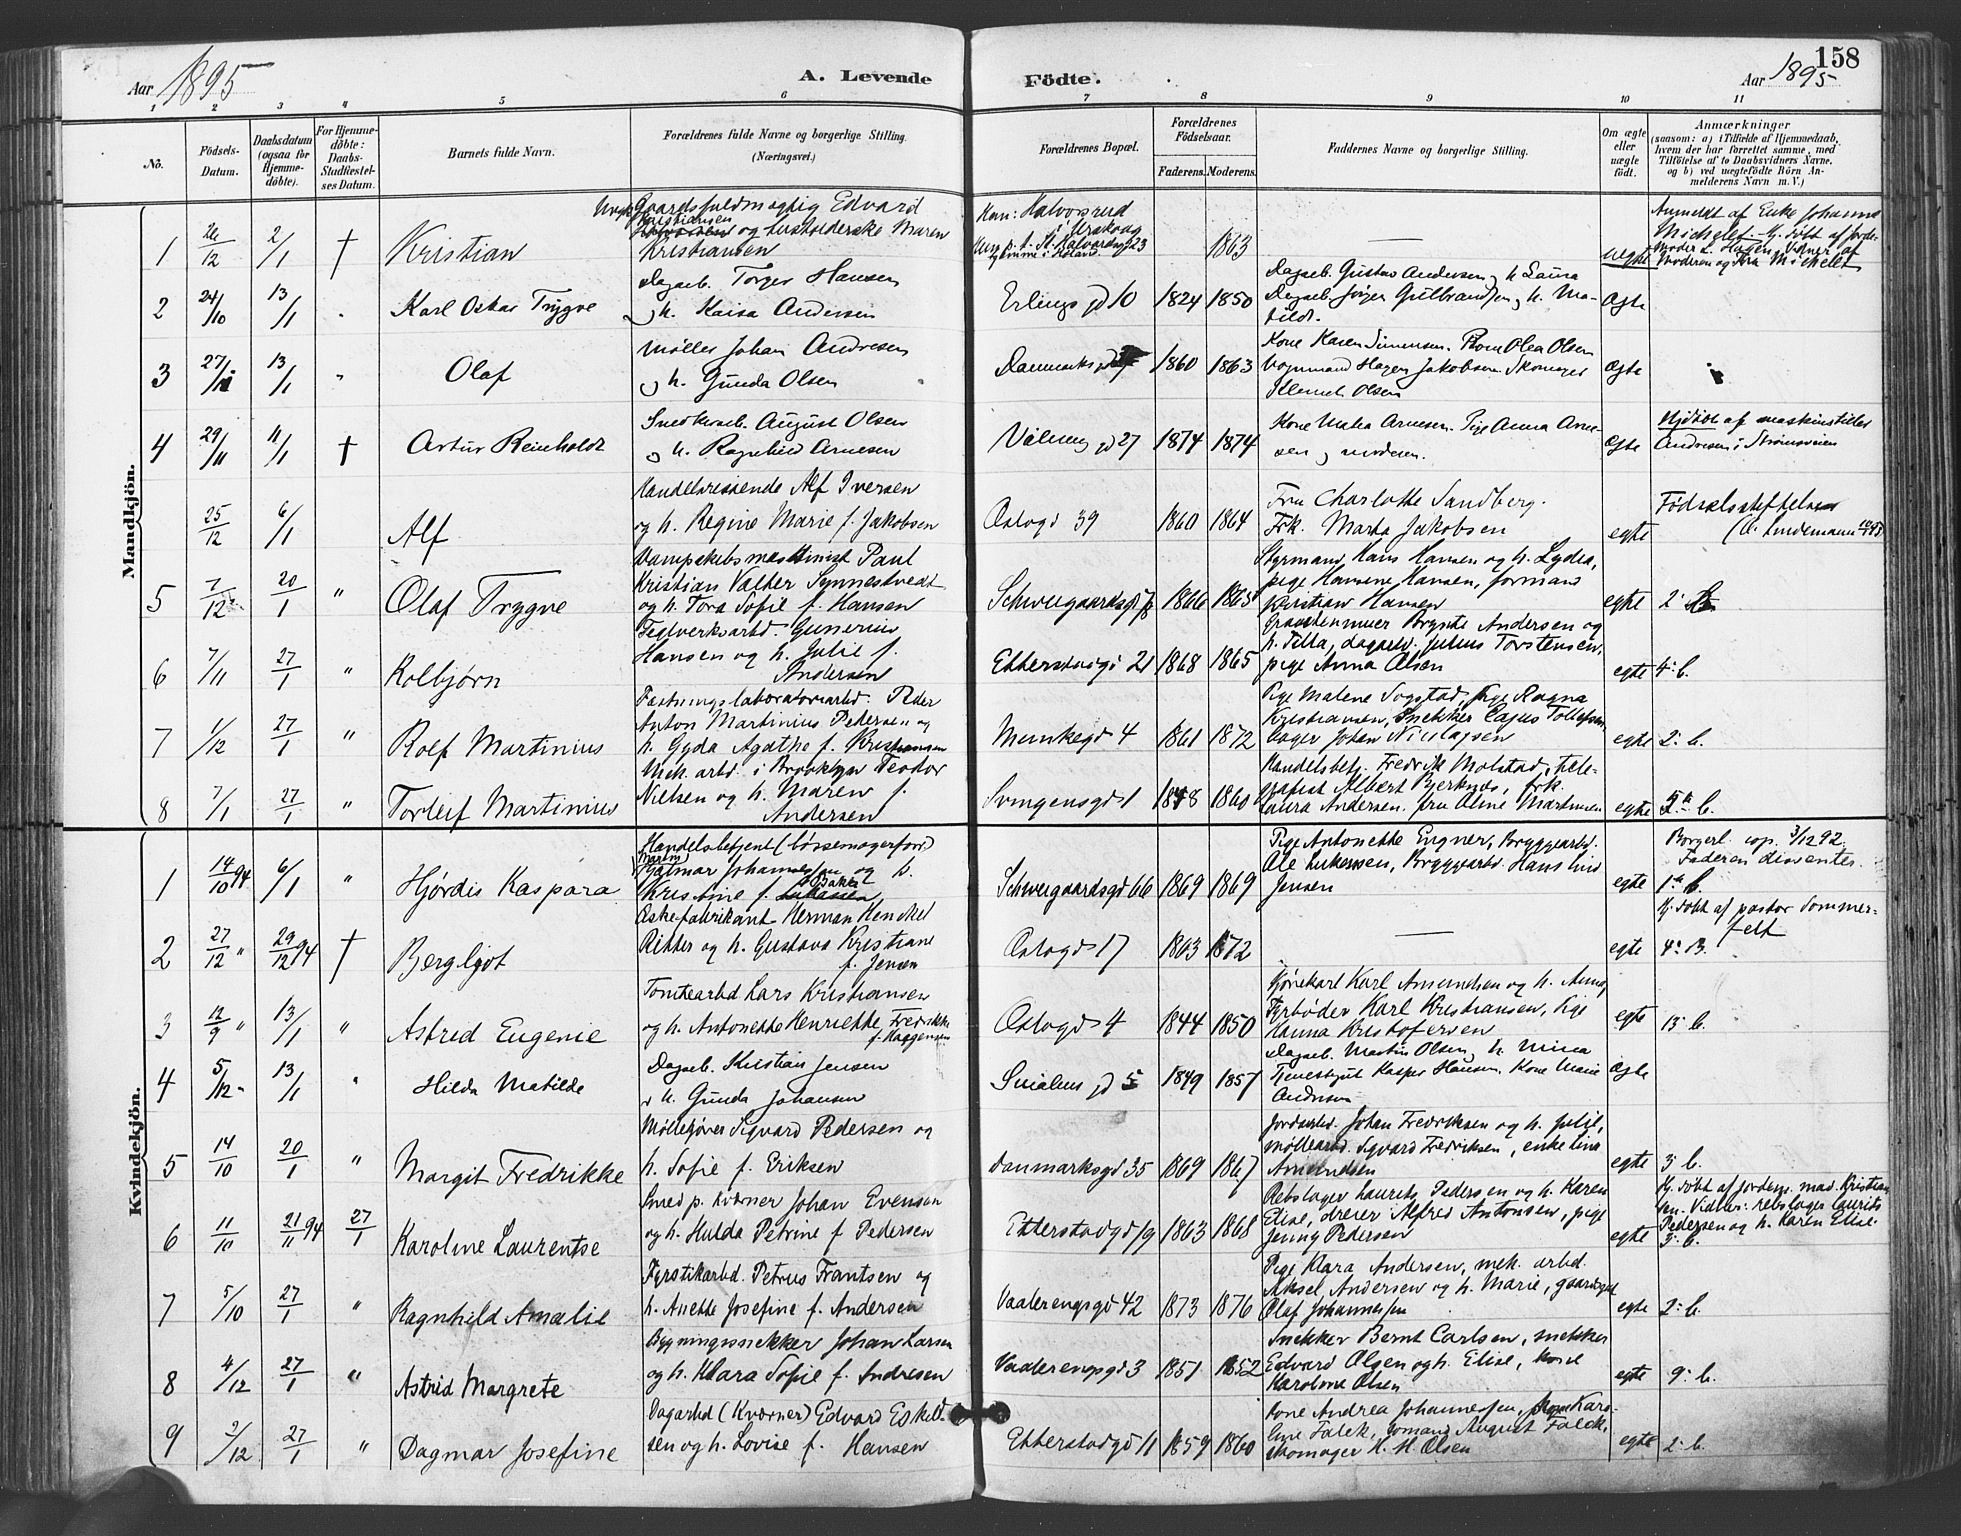 158
Aar 1895
A. Levende
Födte.
Aar 1895
1 2 3 4 5 6 7 8 9 10 11
No.
Födsels-
Datum.
Daabsdatum
(ogsaa for
Hjemme-
döbte).
For Hjemme-
döbte:
Daabs-
Stadfæstel-
ses Datum.
Barnets fulde Navn.
Forældrenes fulde Navne og borgerlige Stilling.
(Næringsvei.)
Forældrenes Bopæl.
Forældrenes
Födselsaar.
Faderens. Moderens.
Faddernes Navne og borgerlige Stilling.
Om ægte
eller
uægte
födt.
Anmærkninger
(saasom: a) i Tilfælde af Hjemmedaab,
hvem der har forrettet samme, med
Tilföielse af to Daabsvidners Navne.
og b) ved uægtefödte Börn An-
melderens Navn m. V.)
Mandkjön.
1 26/12 2/1 † Kristian
Gaardsfuldmægtig Edvard
Kristiansen
og husholderske Maren
Kristiansen
Halvorsrud
i Urskoug
1863
uegte
Anmeldt af Enke Johanna
Michelet. Hj. döbt af Jorde-
moder
Moderen og Fru Michelet
2 24/10 13/1 " Karl Oskar Trygve
Dagarb. Torger Hansen
og h. Kaisa Andersen
Erlings gd 10 1824 1850
Dagarb. Gustav Andersen og h. Laura
Dagarb. Jörgen Gulbrandsen og h. Ma-
tilde.
Ægte
3 27/11 13/1 " Olaf
Möller Johan Andresen
og h. Gunda Olsen
Danmarks gd 1860 1863
Kone Karen Simensen. Kone Olea Olsen
Vognmand Hagen Jakobsen. Skomager
Olsen
Ægte
4 29/11 11/1 † Artur Reinholdt
Snedkerarb. August Olsen
og h. Ragnhild Arnesen
Vålereng gd 27 1874 1874
Kone Maka Arnesen. Pige Anna Arne-
sen og moderen.
Ægte
Hjdöbt af maskinstiller
Andresen i Strömsveien
25/12 6/1 Alf
Handelsreisende Alf Iversen
og h. Regine Marie f. Jakobsen
Oslogd 39 1860 1864
Fru Charlotte Sandberg.
Frk. Marta Jakobsen
egte
Födselsstiftelsen
5 7/12 20/1 " Olaf Trygve
Dampskibsmaskinist Paul
Kristian Valter Synnestvedt
og h. Tora Sofie f. Hansen
Schweigaardsgd 1866 1865
Styrmand Hans Hansen og h. Lydia,
pige Hansine Hansen, formand
Kristian Hansen
egte 2. b.
6 7/11 27/1 " Kolbjörn
Teglverksarbd. Gunerius
Hansen og h. Julie f.
Andersen
Etterstadgd 21 1868 1865
Graastenmurer Brynte Andersen og
h. Tilla, dagarbd. Julius Torstensen,
pige Anna Olsen
egte 4. b.
7 1/12 27/1 " Rolf Martinius
Fæstningslaboratoriearbd. Peder
Anton Martinius Pedersen og
h. Gyda Agathe f. Kristiansen
Munkegd 4 1861 1872
Pige Malene Sogstad, pige Ragna
Kristiansen, Snekker Cajus Tollefsen,
bager Johan Nicolaysen
egte 2. b.
8 7/1 27/1 " Torleif Martinius
Mek. arbd. i Brooklyn Teodor
Nielsen og h. Maren f.
Andersen
Svingensgd 1 1848 1860
Handelsbetj. Fredrik Molstad, tele-
grafist Albert Bjerknes, frk.
Laura Andersen, fru Aline Martinsen
egte 5te b.
Kvindekjön.
1 14/10 94 6/1 " Hjördis Kaspara
Handelsbetjent (bössemagerforr)
Martin
Hjalmar Johannessen og h.
Kristine f. Baker
Schweigaardsgd 66 1869 1869
Pige Antonette Engner, Bryggearbd.
Ole Eukersen, Bryggearbd. Hans Lind
Jensen
egte
Borgerl. cop. 3/12 92.
Faderen dissenter.
1te b.
2 27/12 " 29/12 94 † Bergljot
Æskefabrikant Herman Henckel
Ritter og h. Gustava Kristiane
f. Jensen
Oslogd 17 1863 1872
egte
Hj. döbt af pastor Sommer-
felt
4. B.
3 12/9 " 13/1 " Astrid Eugenie
Tomtearbd Lars Kristiansen
og h. Antonette Henriette Fredrikke
f. Haagensen
Oslogd 4 1844 1850
Kjörekarl Karl Amundsen og h. Anna,
Fyrböder Karl Kristiansen, Pige
Hanna Kristofersen
egte 13. b.
4 5/12 " 13/1 " Hilda Matilde
Dagarb. Kristian Jensen
og h. Gunda Johansen
Smålens gd 5 1849 1857
Dagarb. Martin Olsen og h. Mina
Tjenestegut Kasper Hansen. Kone Marie
Andersen
Ægte
5 14/10 20/1 " Margit Fredrikke
Möllekjörer Sigvard Pedersen og
h. Sofie f. Eriksen
Danmarksgd 35 1869 1867
Jordarbd. Johan Fredriksen og h. Julie,
möllearbd. Sigvard Fredriksen, enke Lina
Amundsen
egte 3. b.
6 11/10 21/11 94 27/1 Karoline Laurentse
Smed p. Kværner Johan Evensen
og h. Hulda Petrine f. Pedersen
Etterstadgd 19 1863 1868
Rebslager Laurits Pedersen og h. Karen
Elise, dreier Alfred Antonsen, pige
Jenny Pedersen
egte
Hj. döbt af jordem. mad. Kristian-
sen. Vidner: rebslager Laurids
Pedersen og h. Karen Elise.
3. b.
7 5/10 27/1 " Ragnhild Amalie
Fyrstikarbd. Petrus Frantsen og
h. Anette Josefine f. Andersen
Vaalerengsgd 42 1873 1876
Pige Klara Andersen, mek. arbd.
Aksel Andersen og h. Marie, gaardsgut
Olaf Johannessen
egte 2. b.
8 4/12 27/1 " Astrid Margrete
Bygningssnekker Johan Larsen
og h. Klara Sofie f. Andresen
Vaalerengsgd 3 1851 1852
Snekker Bernt Carlsen, snekker
Edvard Olsen og h. Elise, kone
Karoline Olsen
egte 9. b.
9 2/12 27/1 " Dagmar Josefine
Dagarbd (Kværner) Edvard Eskild-
sen og h. Lovise f. Hansen
Etterstadgd 11 1859 1860
Kone Andrea Johannessen, kone Karo-
line Falck, August Falck,
skomager H. H. Olsen
egte 2. b.